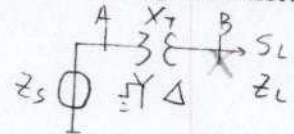 A X_T B
S_L
Z_S Y Δ Z_L